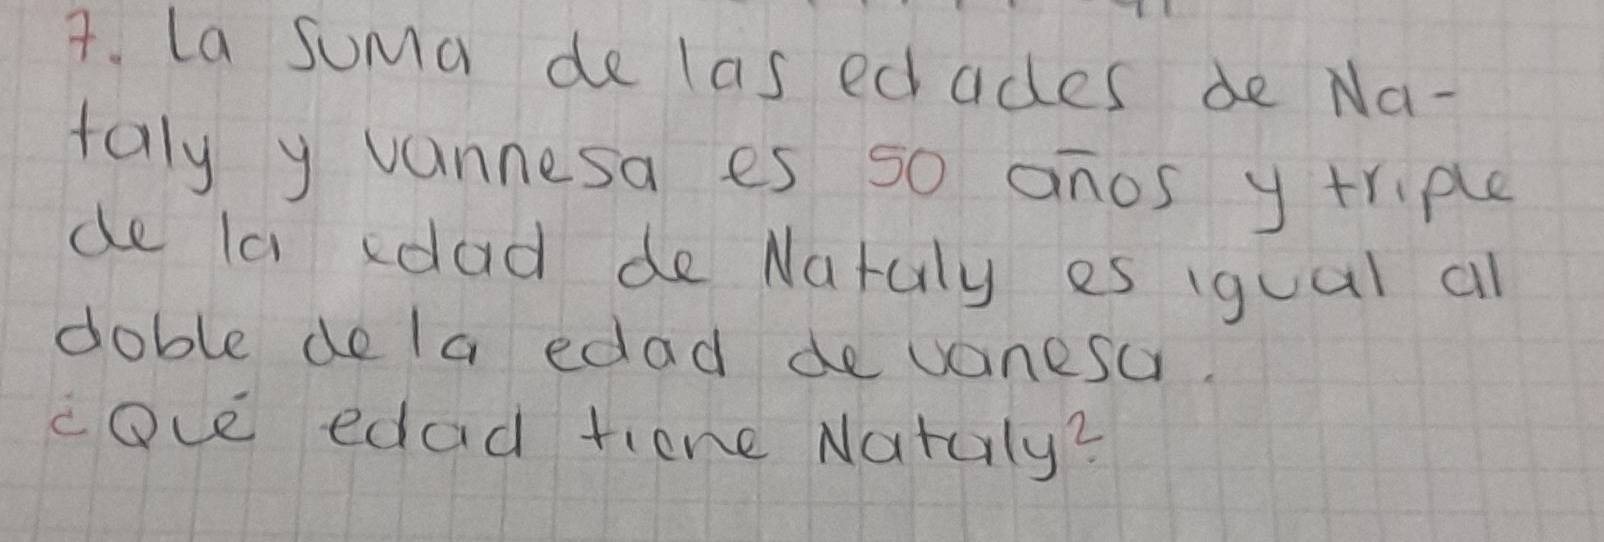 7. La suma de las edades de Na-
taly y vannesa es 50 años y triple
de la edad de Nataly es igual al
doble de la edad de vanesa.
¿Qué edad tiene Nataly?